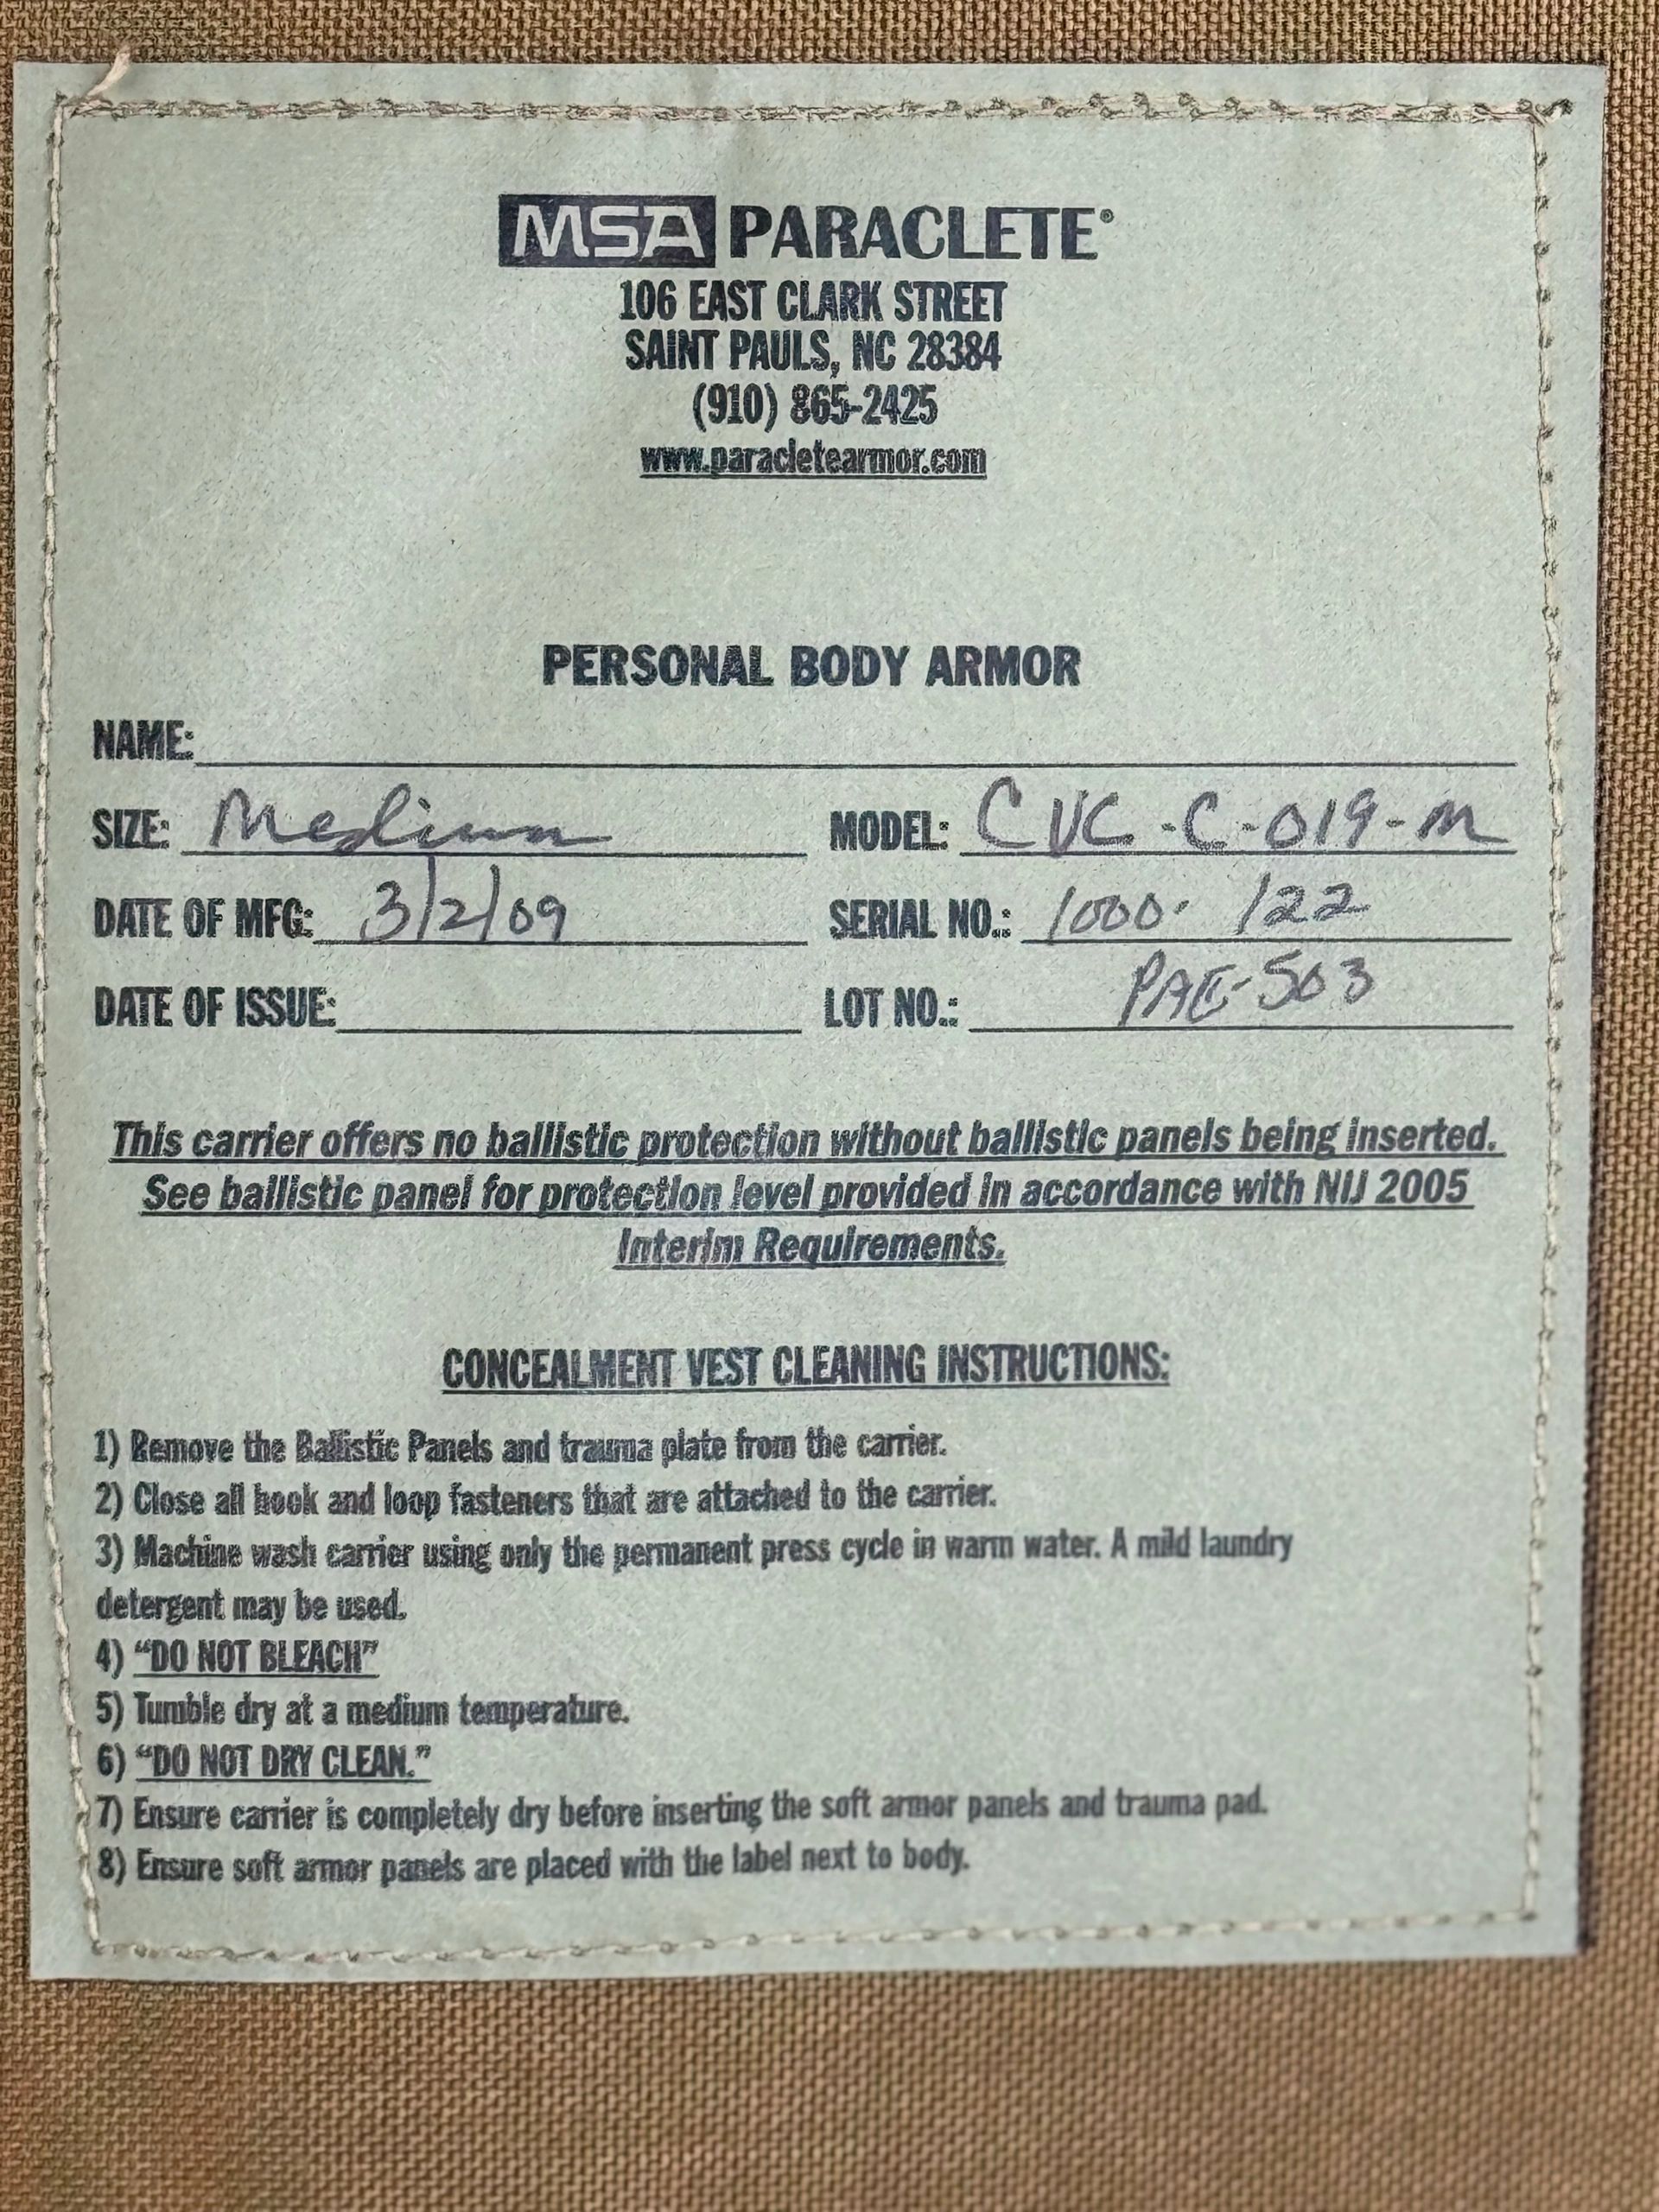 MSA PARACLETE®
106 EAST CLARK STREET
SAINT PAULS, NC 28384
(910) 865-2425
www.paracletearmor.com
PERSONAL BODY ARMOR
NAME:
SIZE: Medium MODEL: CVC-C-019-M
DATE OF MFG: 3/2/09 SERIAL NO.: 1000. 122
DATE OF ISSUE: LOT NO.: PAE-503
This carrier offers no ballistic protection without ballistic panels being inserted.
See ballistic panel for protection level provided in accordance with NIJ 2005
Interim Requirements.
CONCEALMENT VEST CLEANING INSTRUCTIONS:
1) Remove the Ballistic Panels and trauma plate from the carrier.
2) Close all hook and loop fasteners that are attached to the carrier.
3) Machine wash carrier using only the permanent press cycle in warm water. A mild laundry
detergent may be used.
4) “DO NOT BLEACH”
5) Tumble dry at a medium temperature.
6) “DO NOT DRY CLEAN.”
7) Ensure carrier is completely dry before inserting the soft armor panels and trauma pad.
8) Ensure soft armor panels are placed with the label next to body.